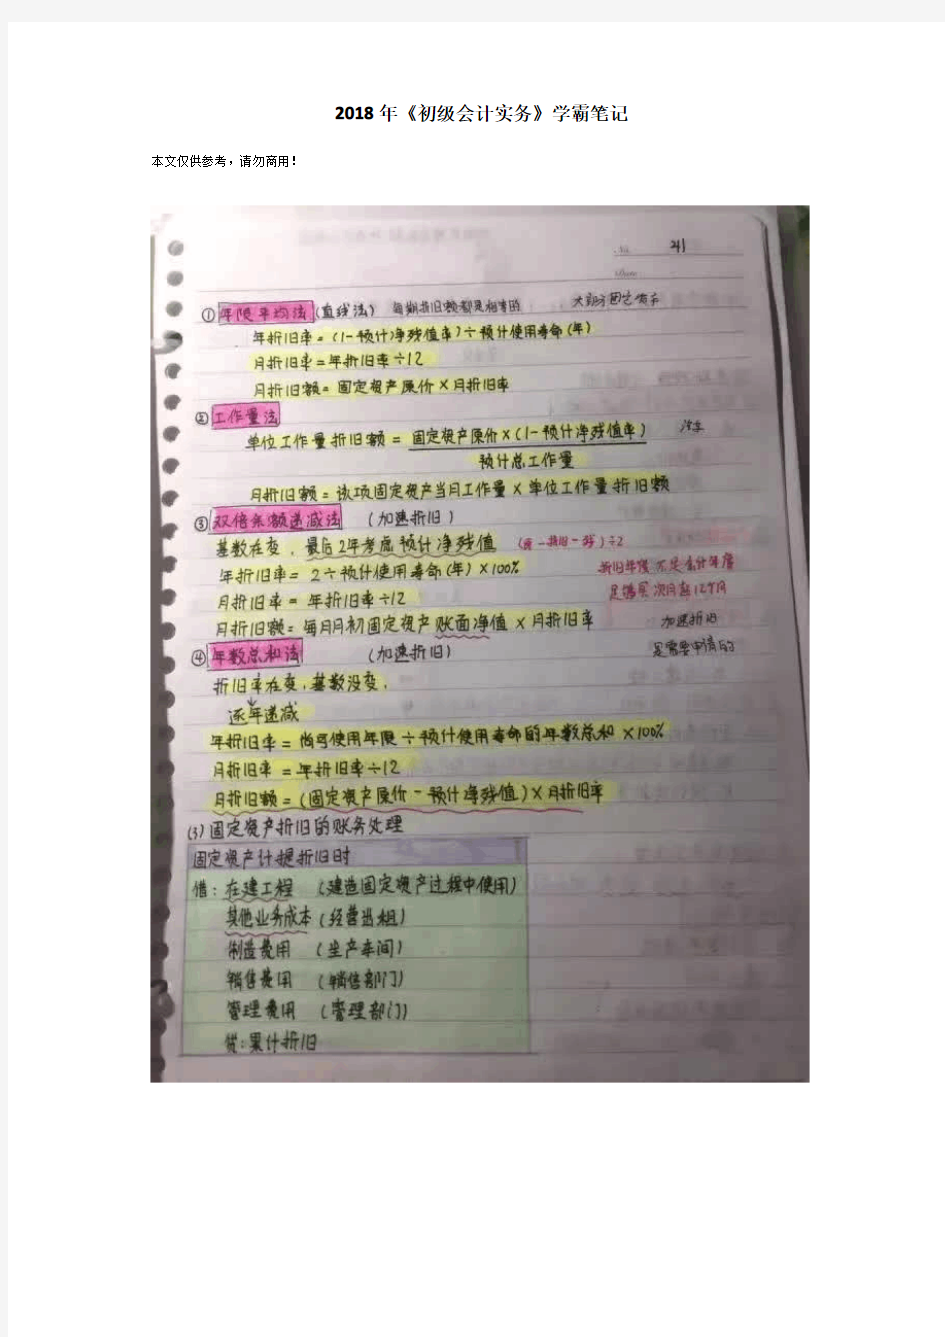 2018 年《初级会计实务》学霸笔记
本文仅供参考，请勿商用！
21
①年限平均法(直线法) 每期折旧额都是相等的
年折旧率=(1-预计净残值率)÷预计使用寿命(年)
月折旧率=年折旧率÷12
月折旧额=固定资产原价×月折旧率
②工作量法
单位工作量折旧额=固定资产原价×(1-预计净残值率) 汽车
预计总工作量
月折旧额=该项固定资产当月工作量×单位工作量折旧额
③双倍余额递减法 (加速折旧)
基数在变，最后2年考虑预计净残值 (原-折旧-残)÷2
年折旧率=2÷预计使用寿命(年)×100% 折旧年度不是会计年度
月折旧率=年折旧率÷12 是购买次月起12个月
月折旧额=每月月初固定资产账面净值×月折旧率 加速折旧
④年数总和法 (加速折旧) 是需要申请的
折旧率在变，基数没变，
逐年递减
年折旧率=尚可使用年限÷预计使用寿命的年数总和×100%
月折旧率=年折旧率÷12
月折旧额=(固定资产原价-预计净残值)×月折旧率
(3)固定资产折旧的账务处理
固定资产计提折旧时
借：在建工程 (建造固定资产过程中使用)
其他业务成本(经营出租)
制造费用 (生产车间)
销售费用 (销售部门)
管理费用 (管理部门)
贷：累计折旧